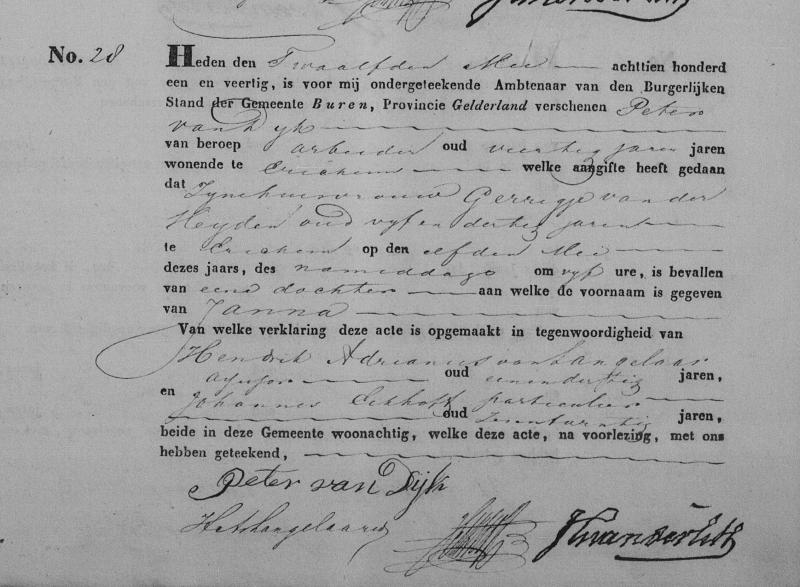 No. 28
Heden den Twaalfden Mei achttien honderd
een en veertig, is voor mij ondergeteekende Ambtenaar van den Burgerlijken
Stand der Gemeente Buren, Provincie Gelderland verschenen Peter
van Dyk
van beroep arbeider oud veertig jaren jaren
wonende te Erichem welke aangifte heeft gedaan
dat Zyne huisvrouw Gerrigje van der
Heyden oud vyf en dertig jaren
te Erichem op den elfden Mei
dezes jaars, des namiddags om vyf ure, is bevallen
van eene dochter aan welke de voornaam is gegeven
van Janna
Van welke verklaring deze acte is opgemaakt in tegenwoordigheid van
Hendrik Adrianus van Hangelaar
oud eenendertig jaren,
en Johannes Eckhoff particulier
oud jaren,
beide in deze Gemeente woonachtig, welke deze acte, na voorlezing, met ons
hebben geteekend,
Peter van Dijk